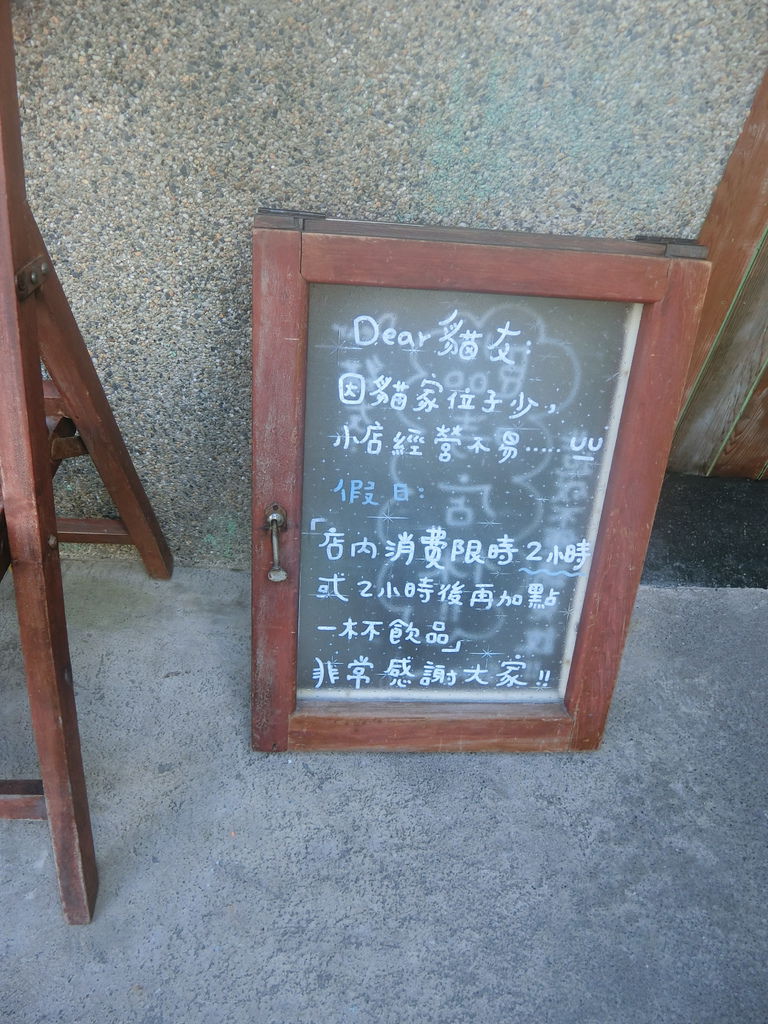 Dear 貓友:
因貓家位子少,
小店經營不易..... UU
假日:
「店內消費限時2小時
或2小時後再加點
一杯飲品」
非常感謝大家!!